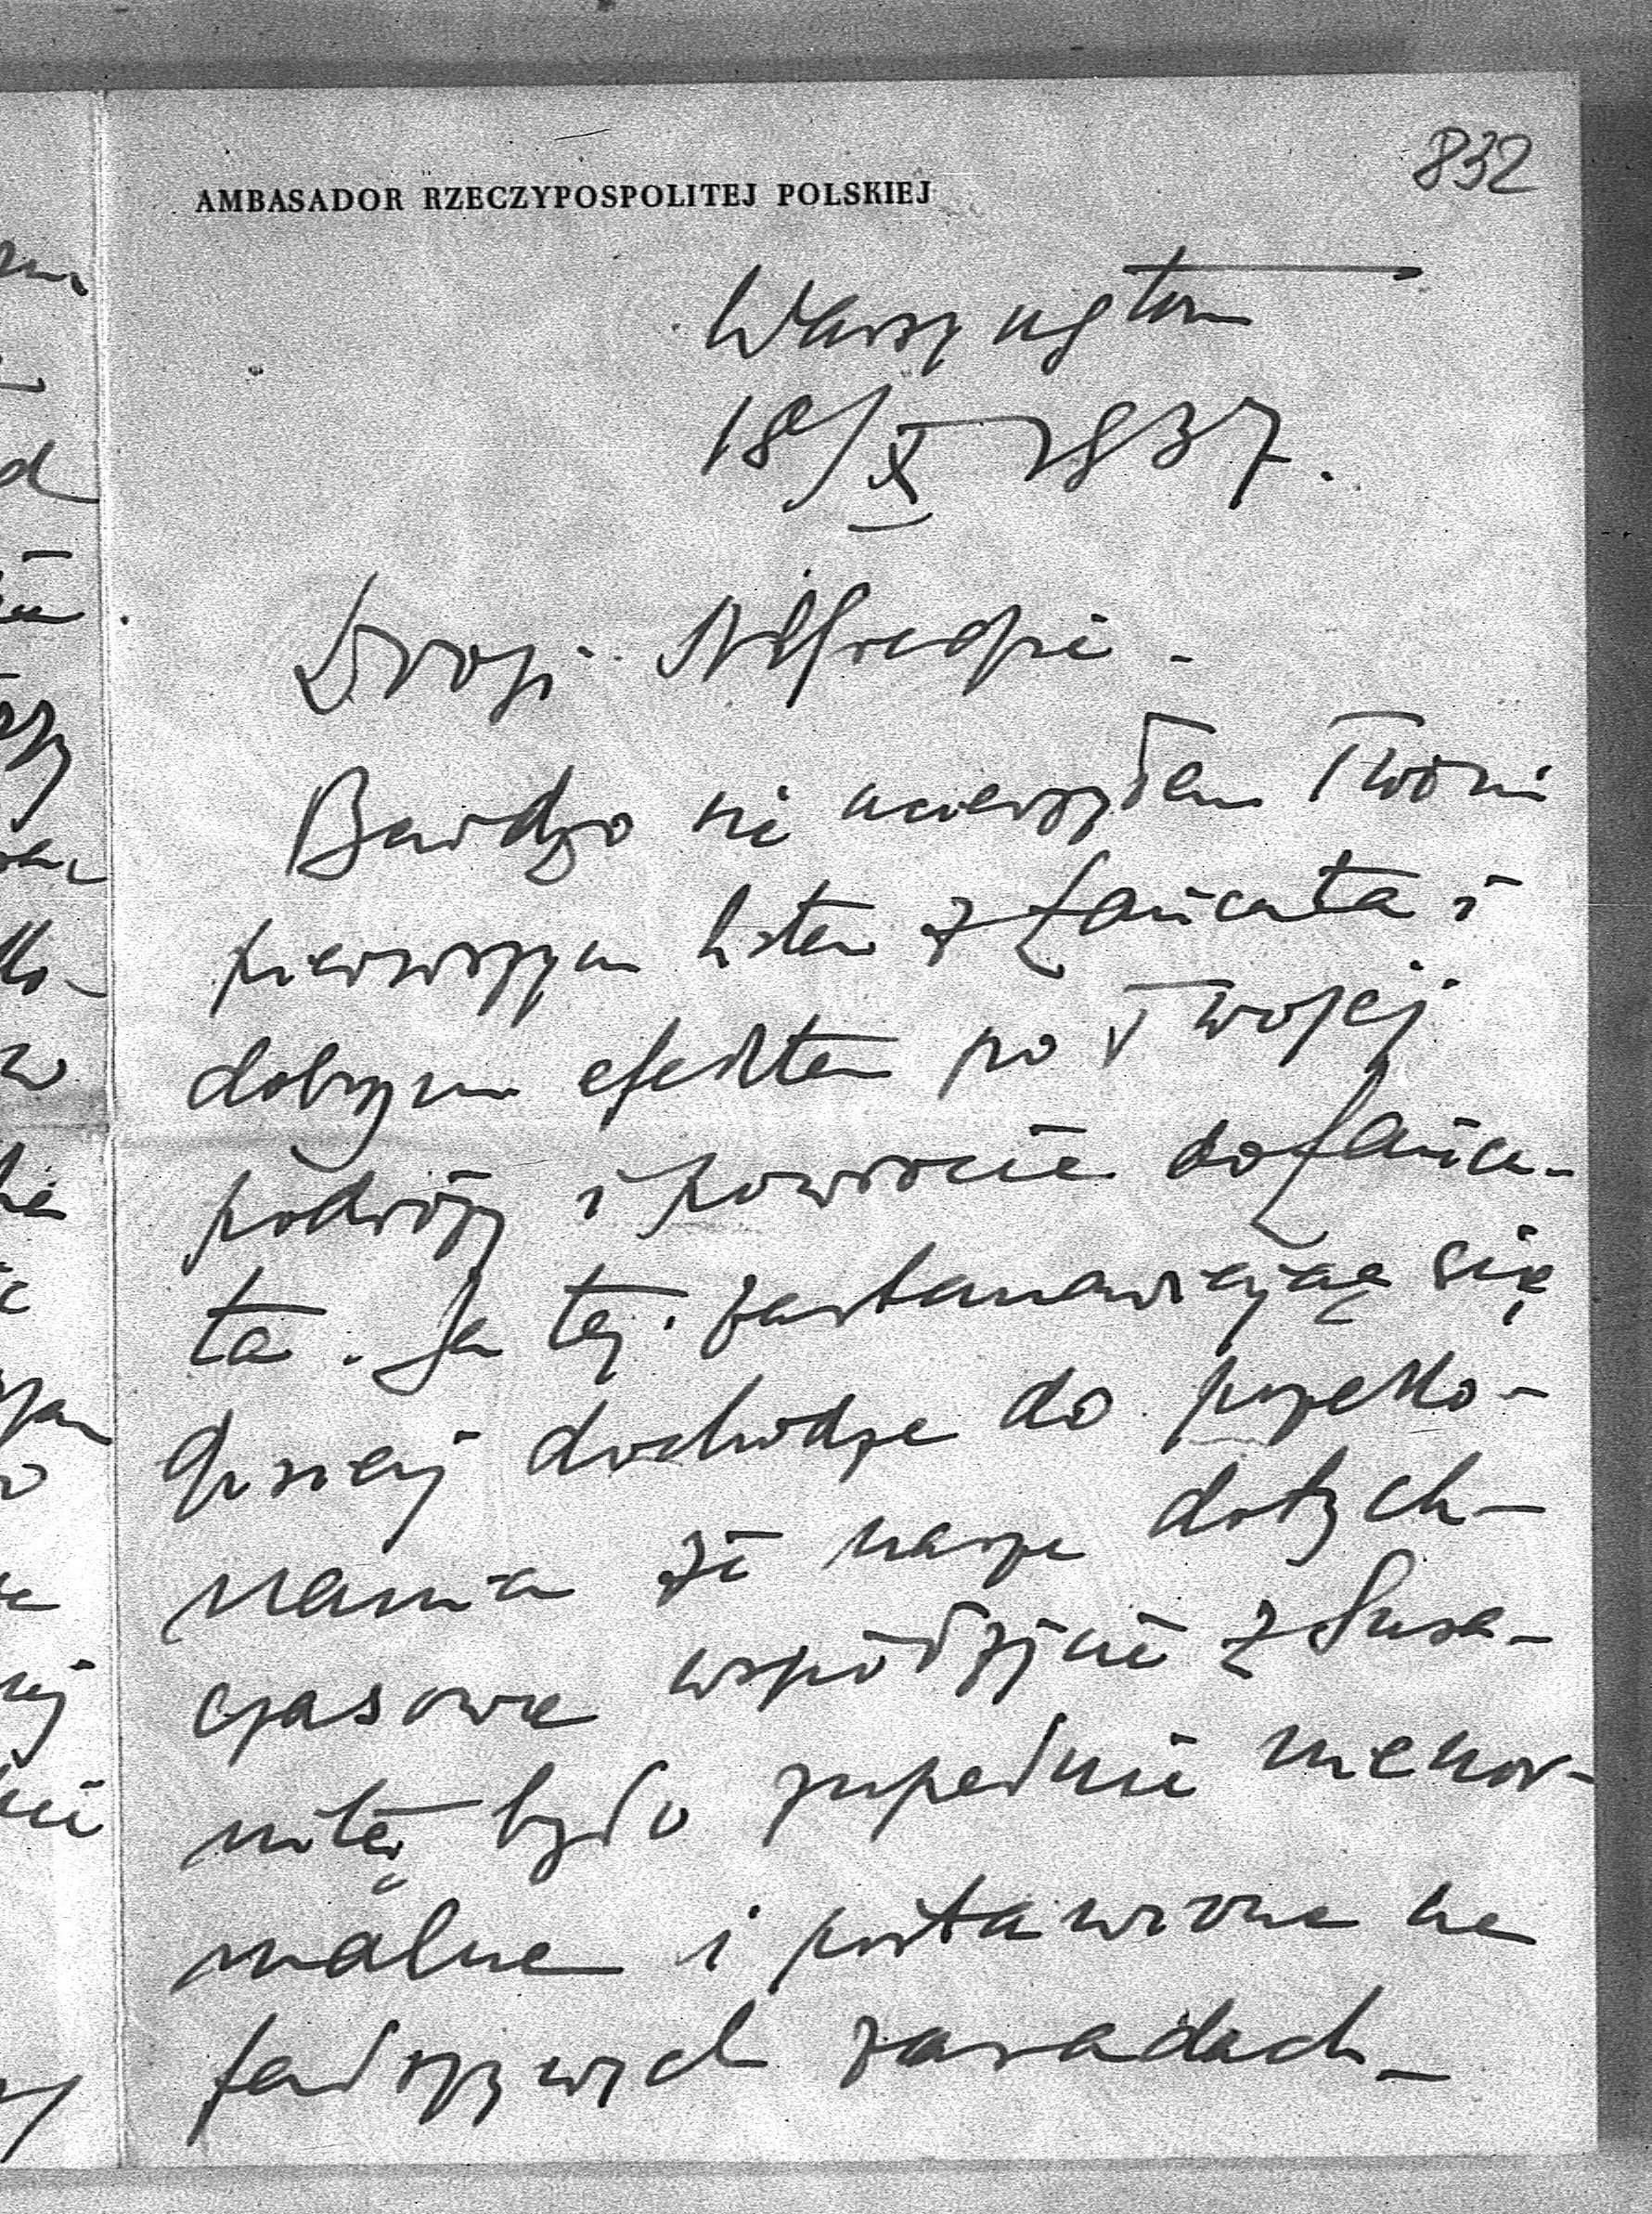 832
AMBASADOR RZECZYPOSPOLITEJ POLSKIEJ
Waszyngton
18/X 1937.
Drogi Alfredzie -
Bardzo się ucieszyłem Twoim
pierwszym listem z Łańcuta i
dobrym efektem po Twojej
podróży i powrocie do Łańcu-
ta. Ja też zastanawiając się
głębiej dochodzę do przeko-
nania że nasze dotych-
czasowe współżycie z
było zupełnie nienor-
malne i postawione na
fałszywych zasadach -